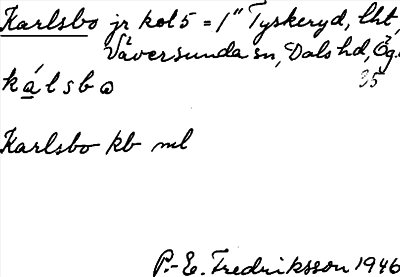 Karlsbo jr kol5 = 1" Tyskeryd, lht,
Väversunda sn, Dals hd, Ög.
kálsbɷ 35
Karlsbo kb ml
P.-E. Fredriksson 1946